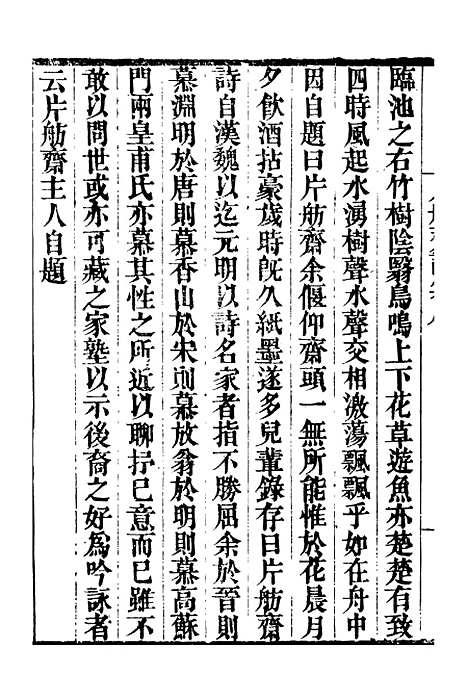 臨池之右竹樹陰翳鳥鳴上下花草遊魚亦楚楚有致
四時風起水湧樹聲水聲交相激蕩飄飄乎如在舟中
因自題曰片舫齋余偃仰齋頭一無所能惟於花晨月
夕飲酒拈豪歲時既久紙墨遂多兒輩錄存曰片舫齋
詩自漢魏以迄元明以詩名家者指不勝屈余於晉則
慕淵明於唐則慕香山於宋則慕放翁於明則慕高蘇
門兩皇甫氏亦慕其性之所近以聊抒己意而已雖不
敢以問世或亦可藏之家塾以示後裔之好為吟詠者
云片舫齋主人自題